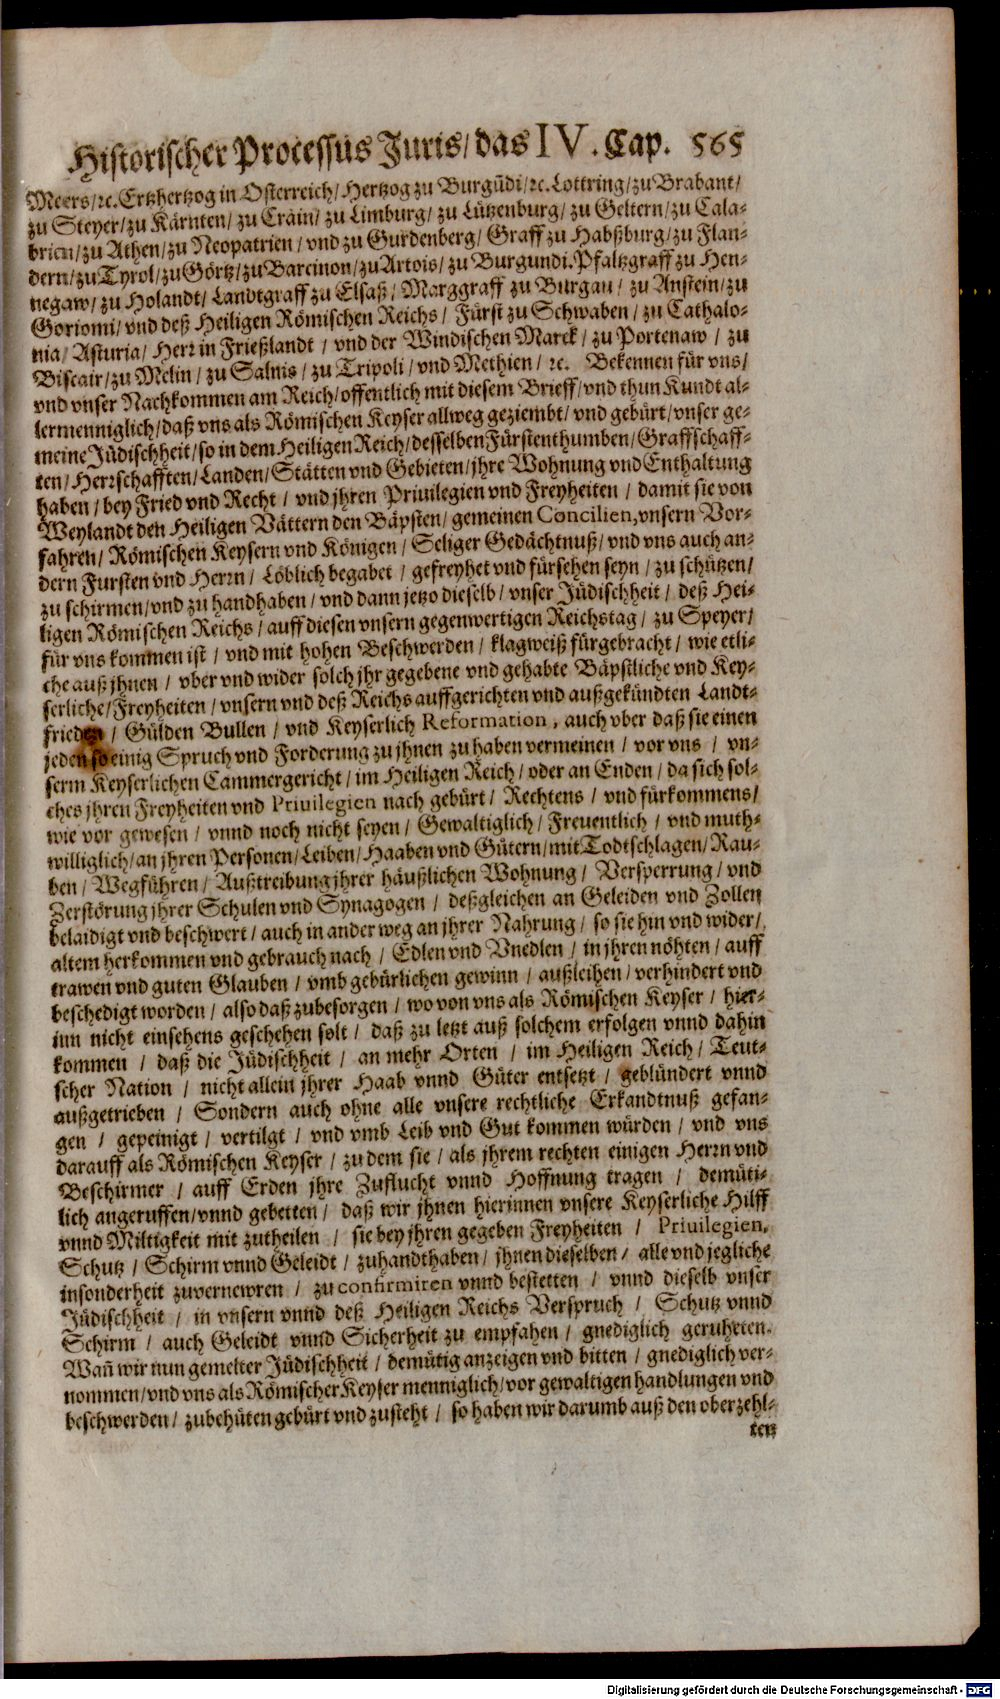 Historischer Processus Juris/ das IV. Cap. 565
Meers/ ꝛc. Ertzhertzog in Osterreich/ Hertzog zu Burgūdi/ ꝛc. Lottring/ zu Brabant/
zu Steyer/ zu Kärnten/ zu Crain/ zu Limburg/ zu Lützenburg/ zu Geltern/ zu Cala-
brien/ zu Athen/ zu Neopatrien/ vnd zu Gurdenberg/ Graff zu Habßburg/ zu Flan-
dern/ zu Tyrol/ zu Görtz/ zu Barcinon/ zu Artois/ zu Burgundi. Pfaltzgraff zu Hen-
negaw/ zu Holandt/ Landtgraff zu Elsaß/ Marggraff zu Burgau/ zu Anstein/ zu
Goriomi/ vnd deß Heiligen Römischen Reichs/ Fürst zu Schwaben/ zu Cathalo-
nia/ Asturia/ Herr in Frießlandt/ vnd der Windischen Marck/ zu Portenaw/ zu
Biscair/ zu Melin/ zu Salnis/ zu Tripoli/ vnd Methien/ ꝛc. Bekennen für vns/
vnd vnser Nachkommen am Reich/ offentlich mit diesem Brieff/ vnd thun Kundt al-
lermenniglich/ daß vns als Römischen Keyser allweg geziembt/ vnd gebürt/ vnser ge-
meine Jüdischheit/ so in dem Heiligen Reich/ desselben Fürstenthumben/ Graffschaff-
ten/ Herrschafften/ Landen/ Stätten vnd Gebieten/ jhre Wohnung vnd Enthaltung
haben/ bey Fried vnd Recht/ vnd jhren Priuilegien vnd Freyheiten/ damit sie von
Weylandt den Heiligen Vättern den Bäpsten/ gemeinen Concilien, vnsern Vor-
fahren/ Römischen Keysern vnd Königen/ Seliger Gedächtnuß/ vnd vns auch an-
dern Fursten vnd Herrn/ Löblich begabet/ gefreyhet vnd fürsehen seyn/ zu schützen/
zu schirmen/ vnd zu handhaben/ vnd dann jetzo dieselb/ vnser Jüdischheit/ deß Hei-
ligen Römischen Reichs/ auff diesen vnsern gegenwertigen Reichstag/ zu Speyer/
für vns kommen ist/ vnd mit hohen Beschwerden/ klagweiß fürgebracht/ wie etli-
che auß jhnen/ vber vnd wider solch jhr gegebene vnd gehabte Bäpstliche vnd Key-
serliche/ Freyheiten/ vnsern vnd deß Reichs auffgerichten vnd außgekündten Landt-
frieden/ Gülden Bullen/ vnd Keyserlich Reformation, auch vber daß sie einen
jeden so einig Spruch vnd Forderung zu jhnen zu haben vermeinen/ vor vns/ vn-
serm Keyserlichen Cammergericht/ im Heiligen Reich/ oder an Enden/ da sich sol-
ches jhren Freyheiten vnd Priuilegien nach gebürt/ Rechtens/ vnd fürkommens/
wie vor gewesen/ vnnd noch nicht seyen/ Gewaltiglich/ Freuentlich/ vnd muth-
williglich/ an jhren Personen/ Leiben/ Haaben vnd Gütern/ mit Todtschlagen/ Rau-
ben/ Wegführen/ Außtreibung jhrer häußlichen Wohnung/ Versperrung/ vnd
Zerstörung jhrer Schulen vnd Synagogen/ deßgleichen an Geleiden vnd Zollen
belaidigt vnd beschwert/ auch in ander weg an jhrer Nahrung/ so sie hin vnd wider/
altem herkommen vnd gebrauch nach/ Edlen vnd Vnedlen/ in jhren nöhten/ auff
trawen vnd guten Glauben/ vmb gebürlichen gewinn/ außleihen/ verhindert vnd
beschedigt worden/ also daß zubesorgen/ wo von vns als Römischen Keyser/ hier-
inn nicht einsehens geschehen solt/ daß zu letzt auß solchem erfolgen vnnd dahin
kommen/ daß die Jüdischheit/ an mehr Orten/ im Heiligen Reich/ Teut-
scher Nation/ nicht allein jhrer Haab vnnd Güter entsetzt/ geblündert vnnd
außgetrieben/ Sondern auch ohne alle vnsere rechtliche Erkandtnuß gefan-
gen/ gepeinigt/ vertilgt/ vnd vmb Leib vnd Gut kommen würden/ vnd vns
darauff als Römischen Keyser/ zu dem sie/ als jhrem rechten einigen Herrn vnd
Beschirmer/ auff Erden jhre Zuflucht vnnd Hoffnung tragen/ demüti-
lich angeruffen/ vnnd gebetten/ daß wir jhnen hierinnen vnsere Keyserliche Hilff
vnnd Miltigkeit mit zutheilen/ sie bey jhren gegeben Freyheiten/ Priuilegien,
Schutz/ Schirm vnnd Geleidt/ zuhandthaben/ jhnen dieselben/ alle vnd jegliche
insonderheit zuvernewren/ zu confirmiren vnnd bestetten/ vnnd dieselb vnser
Jüdischheit/ in vnsern vnnd deß Heiligen Reichs Verspruch/ Schutz vnnd
Schirm/ auch Geleidt vnnd Sicherheit zu empfahen/ gnediglich geruheten.
Wañ wir nun gemelter Jüdischheit/ demütig anzeigen vnd bitten/ gnediglich ver-
nommen/ vnd vns als Römischer Keyser menniglich/ vor gewaltigen handlungen vnd
beschwerden/ zubehüten gebürt vnd zusteht/ so haben wir darumb auß den oberzehl-
ten
Digitalisierung gefördert durch die Deutsche Forschungsgemeinschaft - DFG